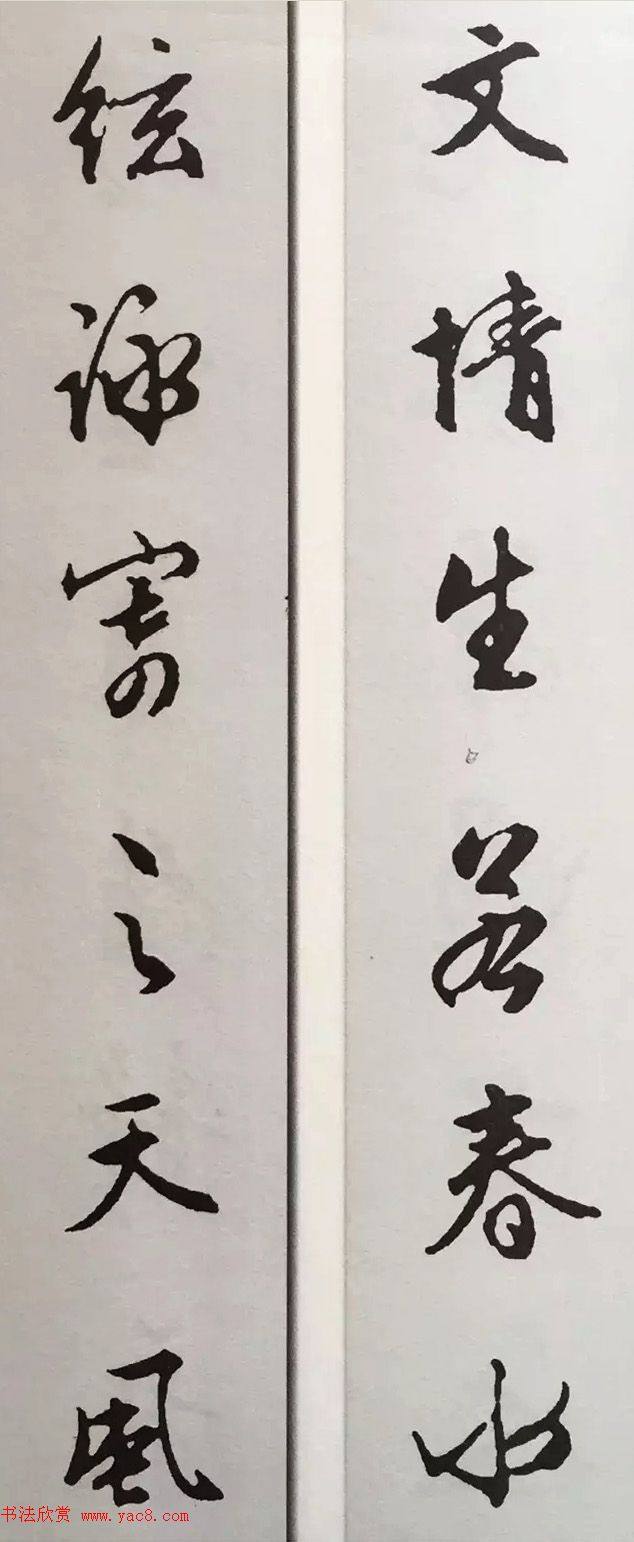 文情生若春水
弦詠寄之天風
书法欣赏 www.yac8.com